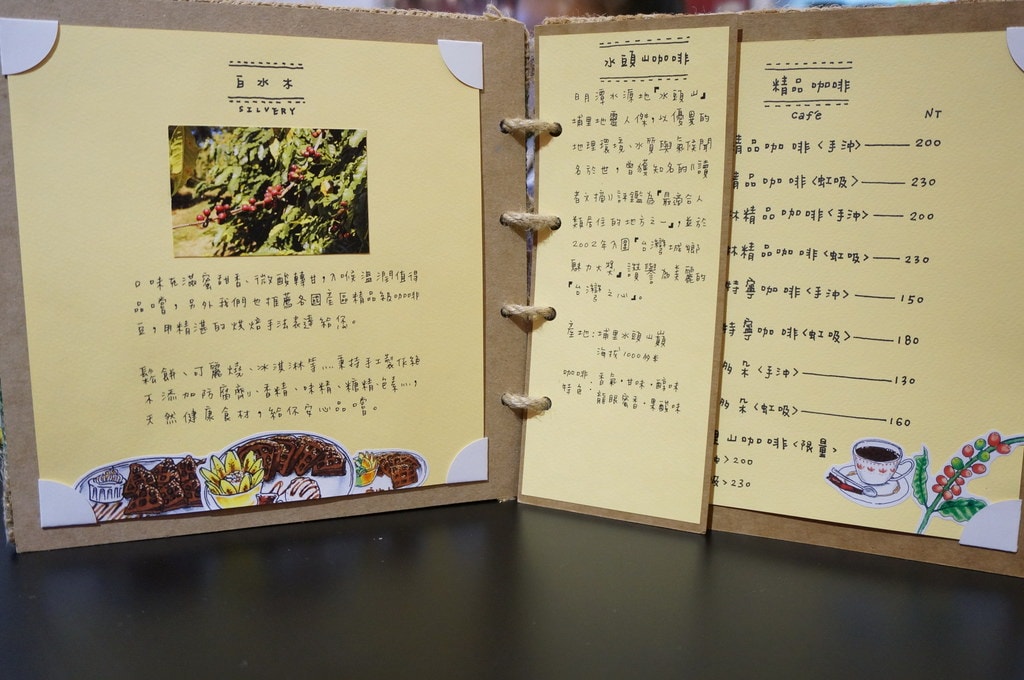 白水木
SILVERY
口味充滿蜜甜香、微酸轉甘，入喉溫潤值得
品嚐，另外我們也推薦各國產區精品級咖啡
豆，用精湛的烘焙手法表達給您。
鬆餅、可麗燒、冰淇淋等....秉持手工製作絕
不添加防腐劑、香精、味精、糖精色素...，
天然健康食材，給你安心品嚐。
水頭山咖啡
日月潭水源地『水頭山』
埔里地靈人傑，以優異的
地理環境、水質與氣候聞
名於世，曾獲知名的《讀
者文摘》評鑑為『最適合人
類居住的地方之一』，並於
2002年入圍『台灣城鄉
魅力大獎』讚譽為美麗的
『台灣之心』。
產地：埔里水頭山巔
海拔1000多米
咖啡特色：香氣，甘味，醇味
龍眼蜜香，果酸味
精品咖啡
café
NT
精品咖啡<手沖> 200
精品咖啡<虹吸> 230
林精品咖啡<手沖> 200
林精品咖啡<虹吸> 230
特寧咖啡<手沖> 150
特寧咖啡<虹吸> 180
朵<手沖> 130
朵<虹吸> 160
山咖啡<限量>
>200
吸>230